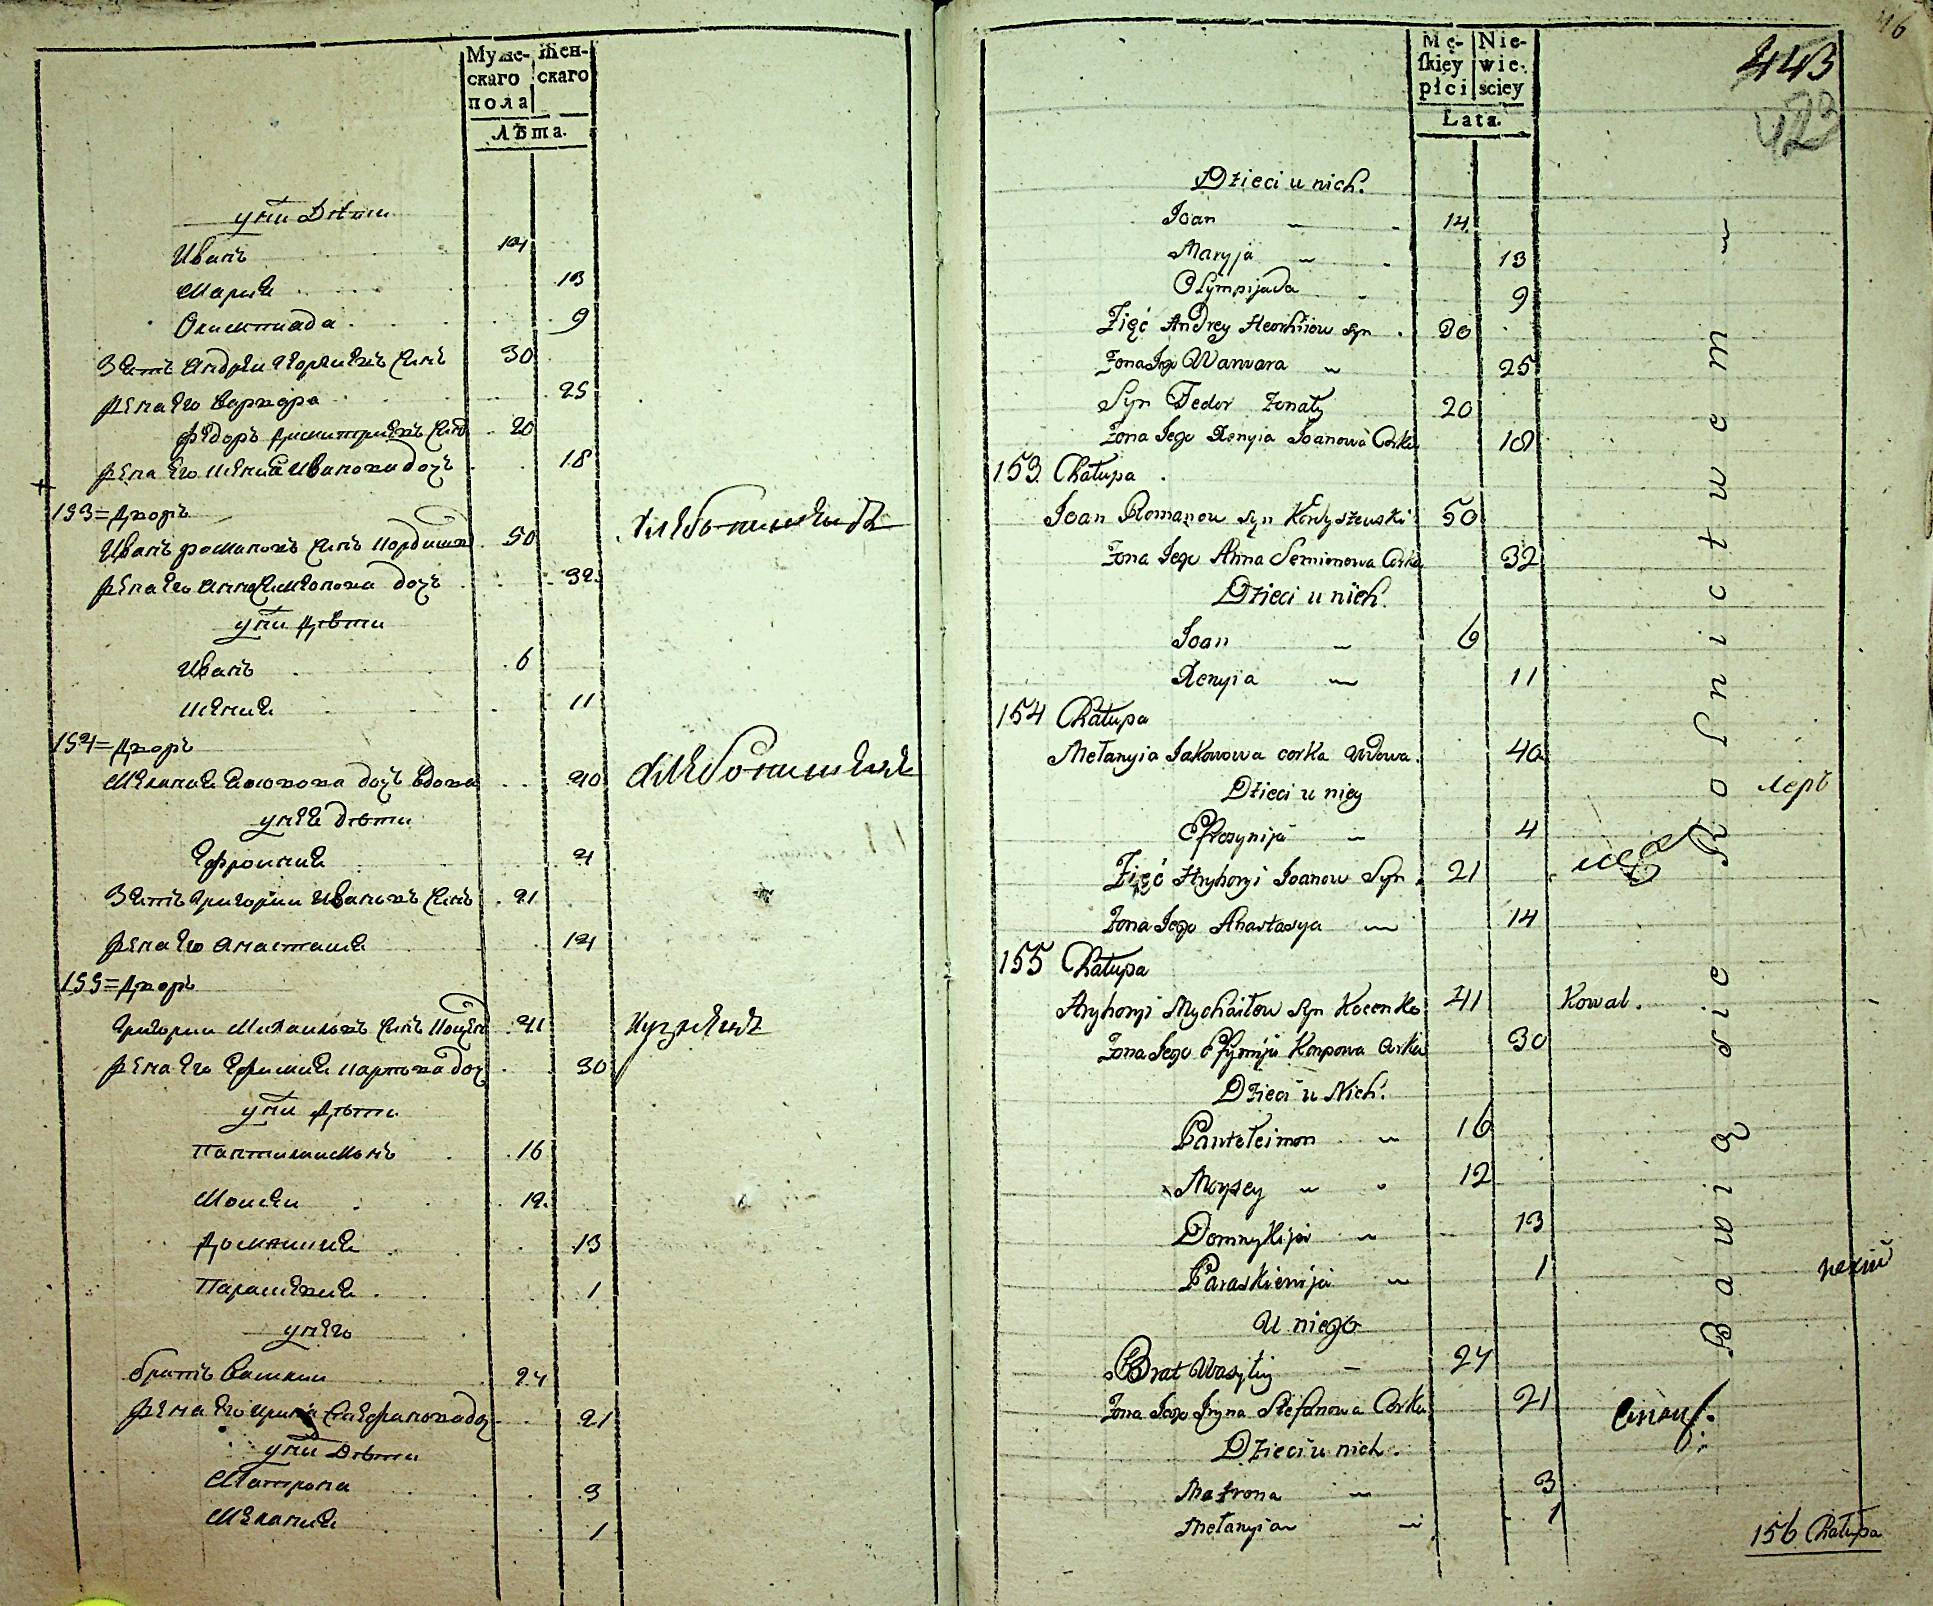 Муже- Жен-
скаго скаго
пола
Лѣта.
у них Дѣти
Иванъ 14
Мария 13
Олимпиада 9
Зять Андреи Георгиевъ Сынъ 30
Жена Его Варвара 25
Федоръ Димитриевъ Сынъ 20
Жена Его Ксения Иванова дочь 18
153= Дворъ
Иванъ Романовъ Сынъ 50 Хлебопашецъ
Жена Его Анна Симионова дочь 32
у них Дѣти
Иванъ 6
Ксения 11
154= Дворъ
Мелания дочь вдова 40
у нея дѣти
Ефросиния 4
Зять Григории Ивановъ Сынъ 21
Жена Его Анастасия 14
155= Дворъ
Григории Михаиловъ Сынъ 41
Жена Его Ефимия Карпова доч 30
у них Дѣти
Пантилиимонъ 16
Моисеи 12
Домникия 13
Параскевия 1
у него
братъ Василии 24
Жена Его Ирина Стефанова доч 21
у них Дѣти
Матрона 3
Мелания 1
46
Mę- Nie-
skiey wie-
płci sciey
Lata.
443
Dzieci u nich.
Joan 14
Maryja 13
Olympijada 9
Zięć Andrey Heorhiiow syn 30
Zona Jego Warwara 25
Syn Fedor Zonaty 20
Zona Jego Xenyia Joanowa Corka 18
153 Chałupa
Joan Romanow syn Kordyszewski 50
Zona Jego Anna Semionowa Corka 32
Dzieci u nich.
Joan 6
Xenyia 11
154 Chałupa
Mełanyia Jakowowa corka Wdowa. 40
Dzieci u niey
Efrosynija 4
Zięć Hryhoryi Joanow Syn 21
Zona Jego Anastasya 14
155 Chałupa
Hryhoryi Mychaiłow Syn Kocenko 41 Kowal.
Zona Jego Efymija Karpowa Corka 30
Dzieci u Nich.
Panteleimon 16
Moysey 12
Domnykija 13
Paraskiewija 1
U niego
Brat Wasyliy 24
Zona Jego Iryna Stefanowa Corka 21
Dzieci u nich.
Matrona 3
Mełanyia 1
156 Chałupa